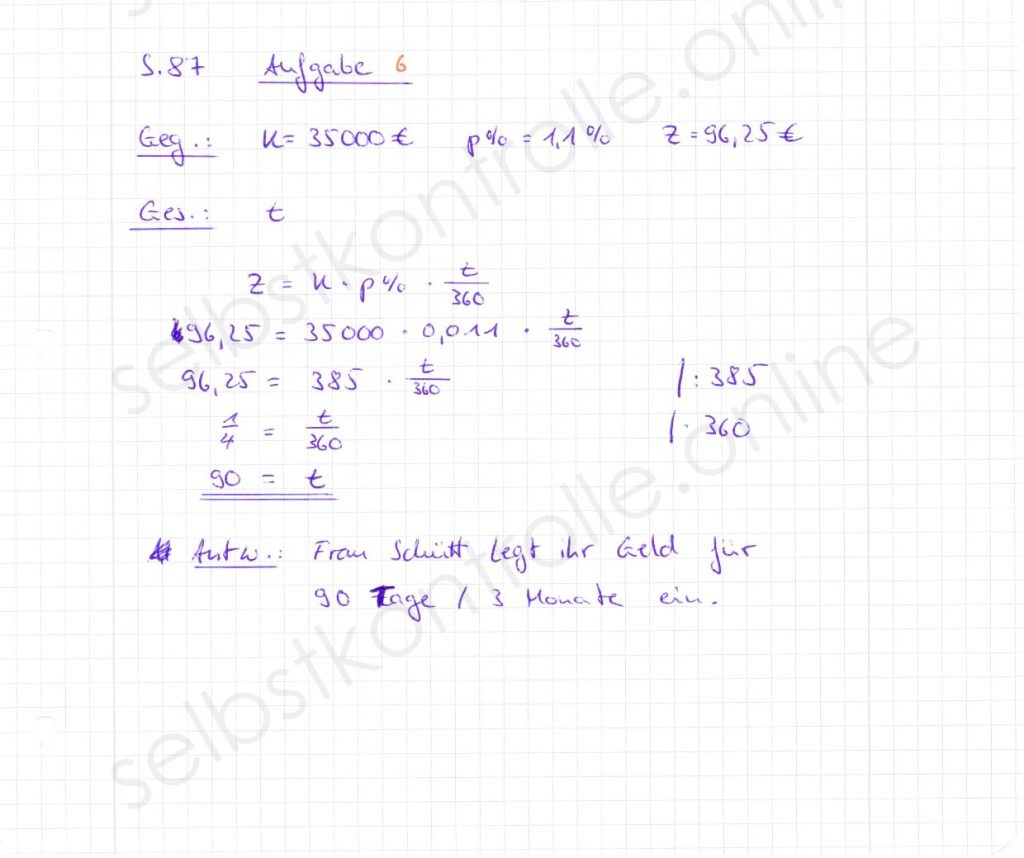 S. 87 Aufgabe 6
Geg.: K = 35000 € p% = 1,1 % Z = 96,25 €
Ges.: t
Z = K · p% · t/360
96,25 = 35000 · 0,011 · t/360
96,25 = 385 · t/360 | : 385
1/4 = t/360 | · 360
90 = t
Antw.: Frau Schütt legt ihr Geld für
90 Tage / 3 Monate ein.
selbstkontrolle.online
selbstkontrolle.online